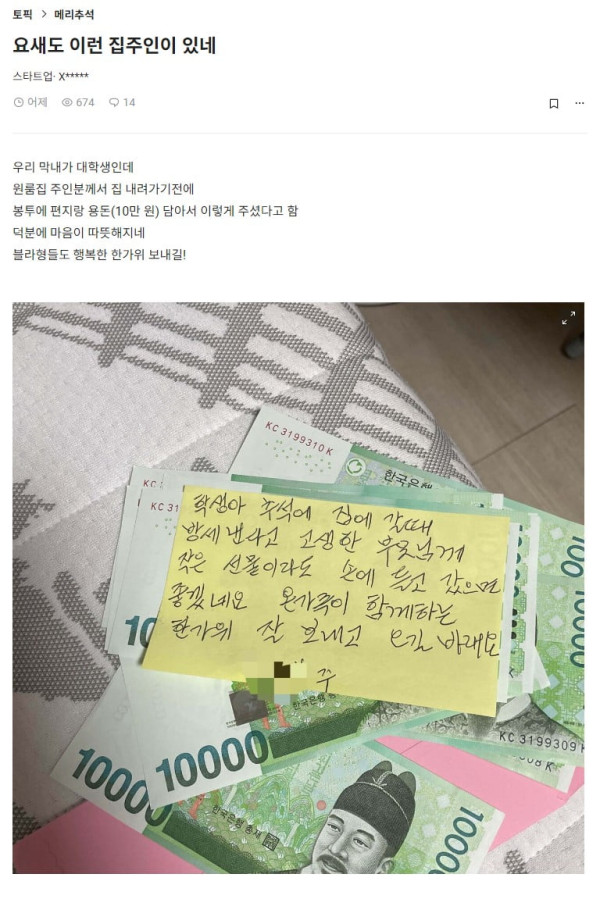 토픽 > 메리추석
요새도 이런 집주인이 있네
스타트업· X*****
어제 674 14
우리 막내가 대학생인데
원룸집 주인분께서 집 내려가기전에
봉투에 편지랑 용돈(10만 원) 담아서 이렇게 주셨다고 함
덕분에 마음이 따뜻해지네
블라형들도 행복한 한가위 보내길!
KC 3199310 K
한국은행
KC 31
KC 3
학생아 추석에 집에 갈때
방세 낸다고 고생한 부모님께
작은 선물이라도 손에 들고 갔으면
좋겠네요 온가족이 함께하는
한가위 잘 보내고 오길 바래요
주
10
100
한국은행
KC 3199309 K
308 K
10000
10000
한국은행 총재
10000